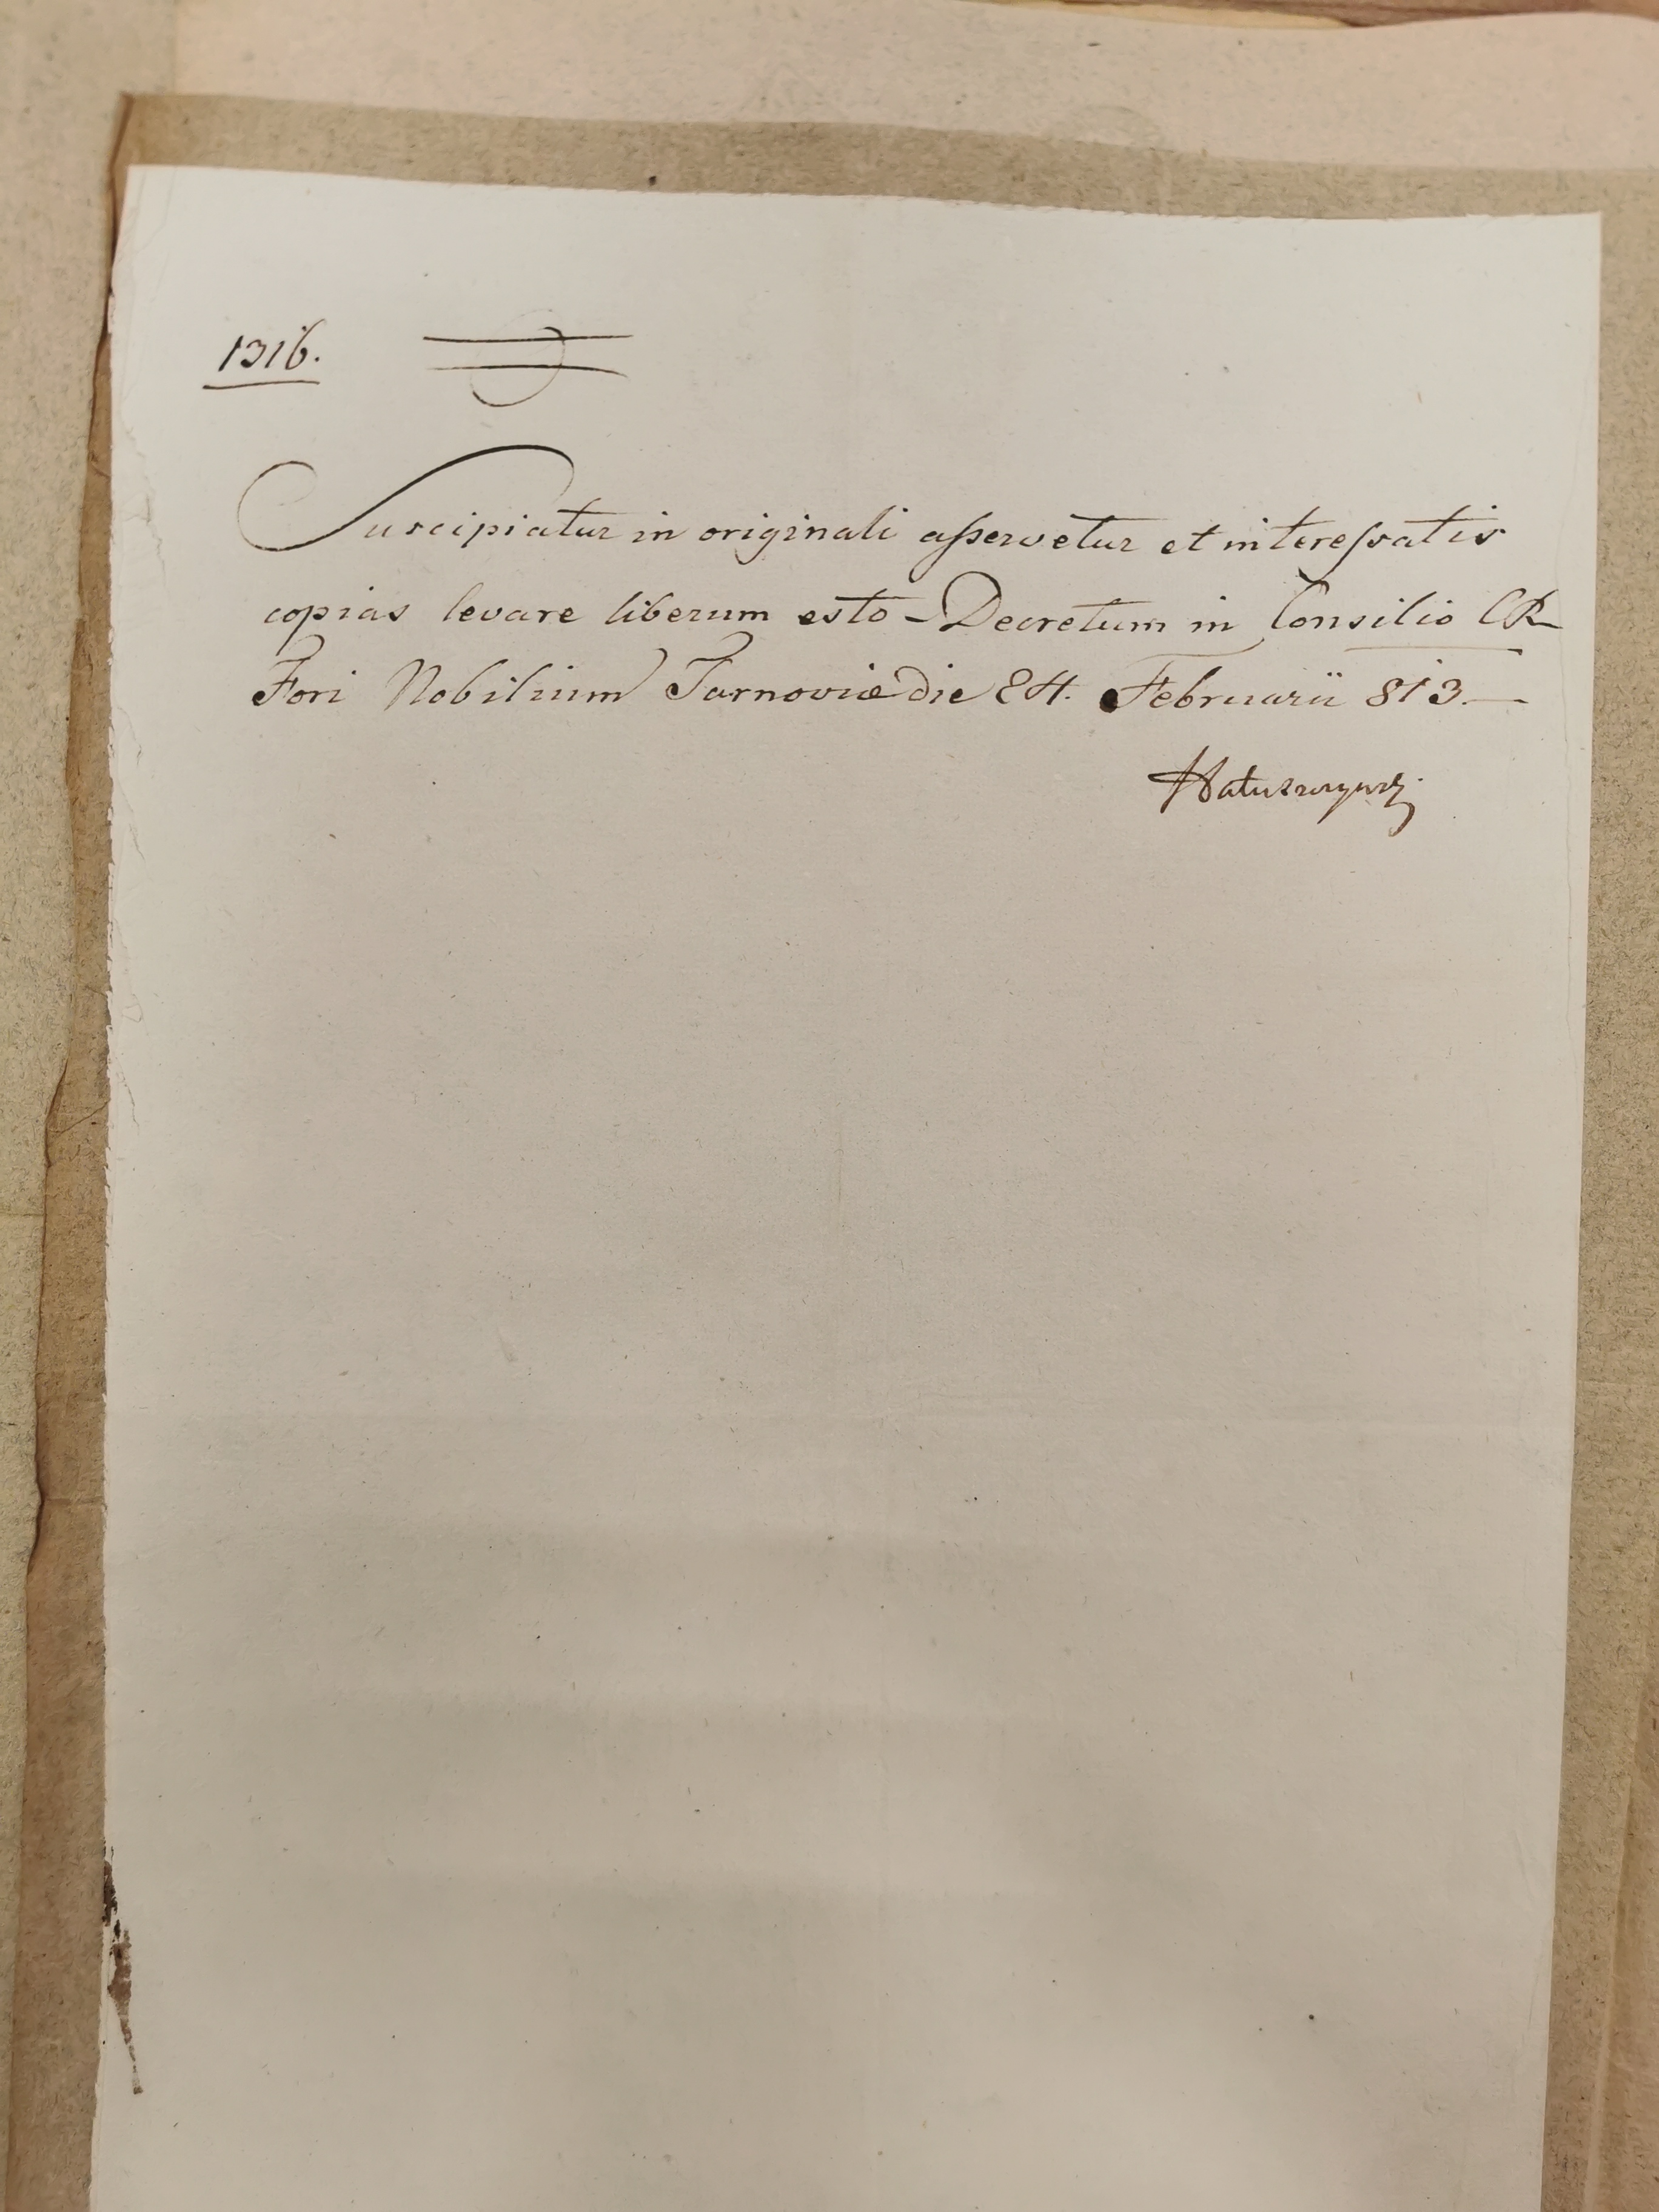 1316.
Suscipiatur in originali asservetur et interessatis
copias levare liberum esto – Decretum in Consilio CR
Fori Nobilium Tarnoviæ die 24. Februarii 813.—